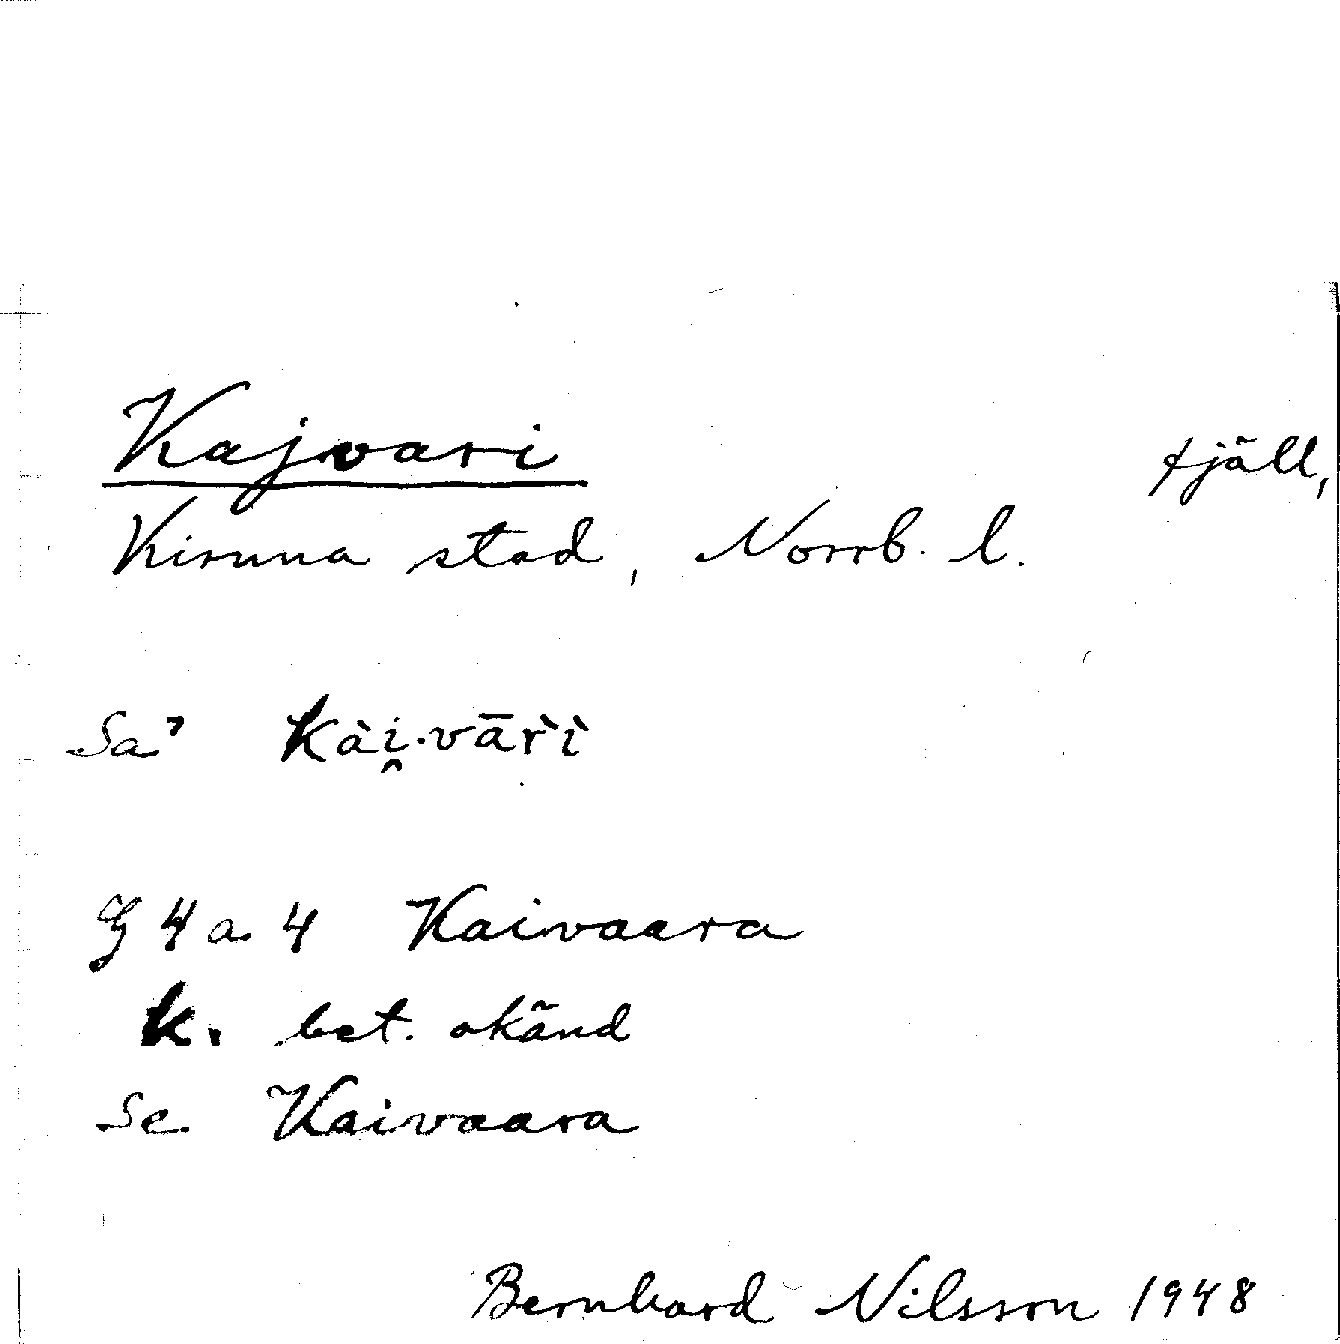 Kajvari fjäll,
Kiruna stad, Norrb. l.
Sa' kài̯·vār̀ì
G 4 a 4 Kaivaara
k. bet. okänd
Se Kaivaara
Bernhard Nilsson 1948